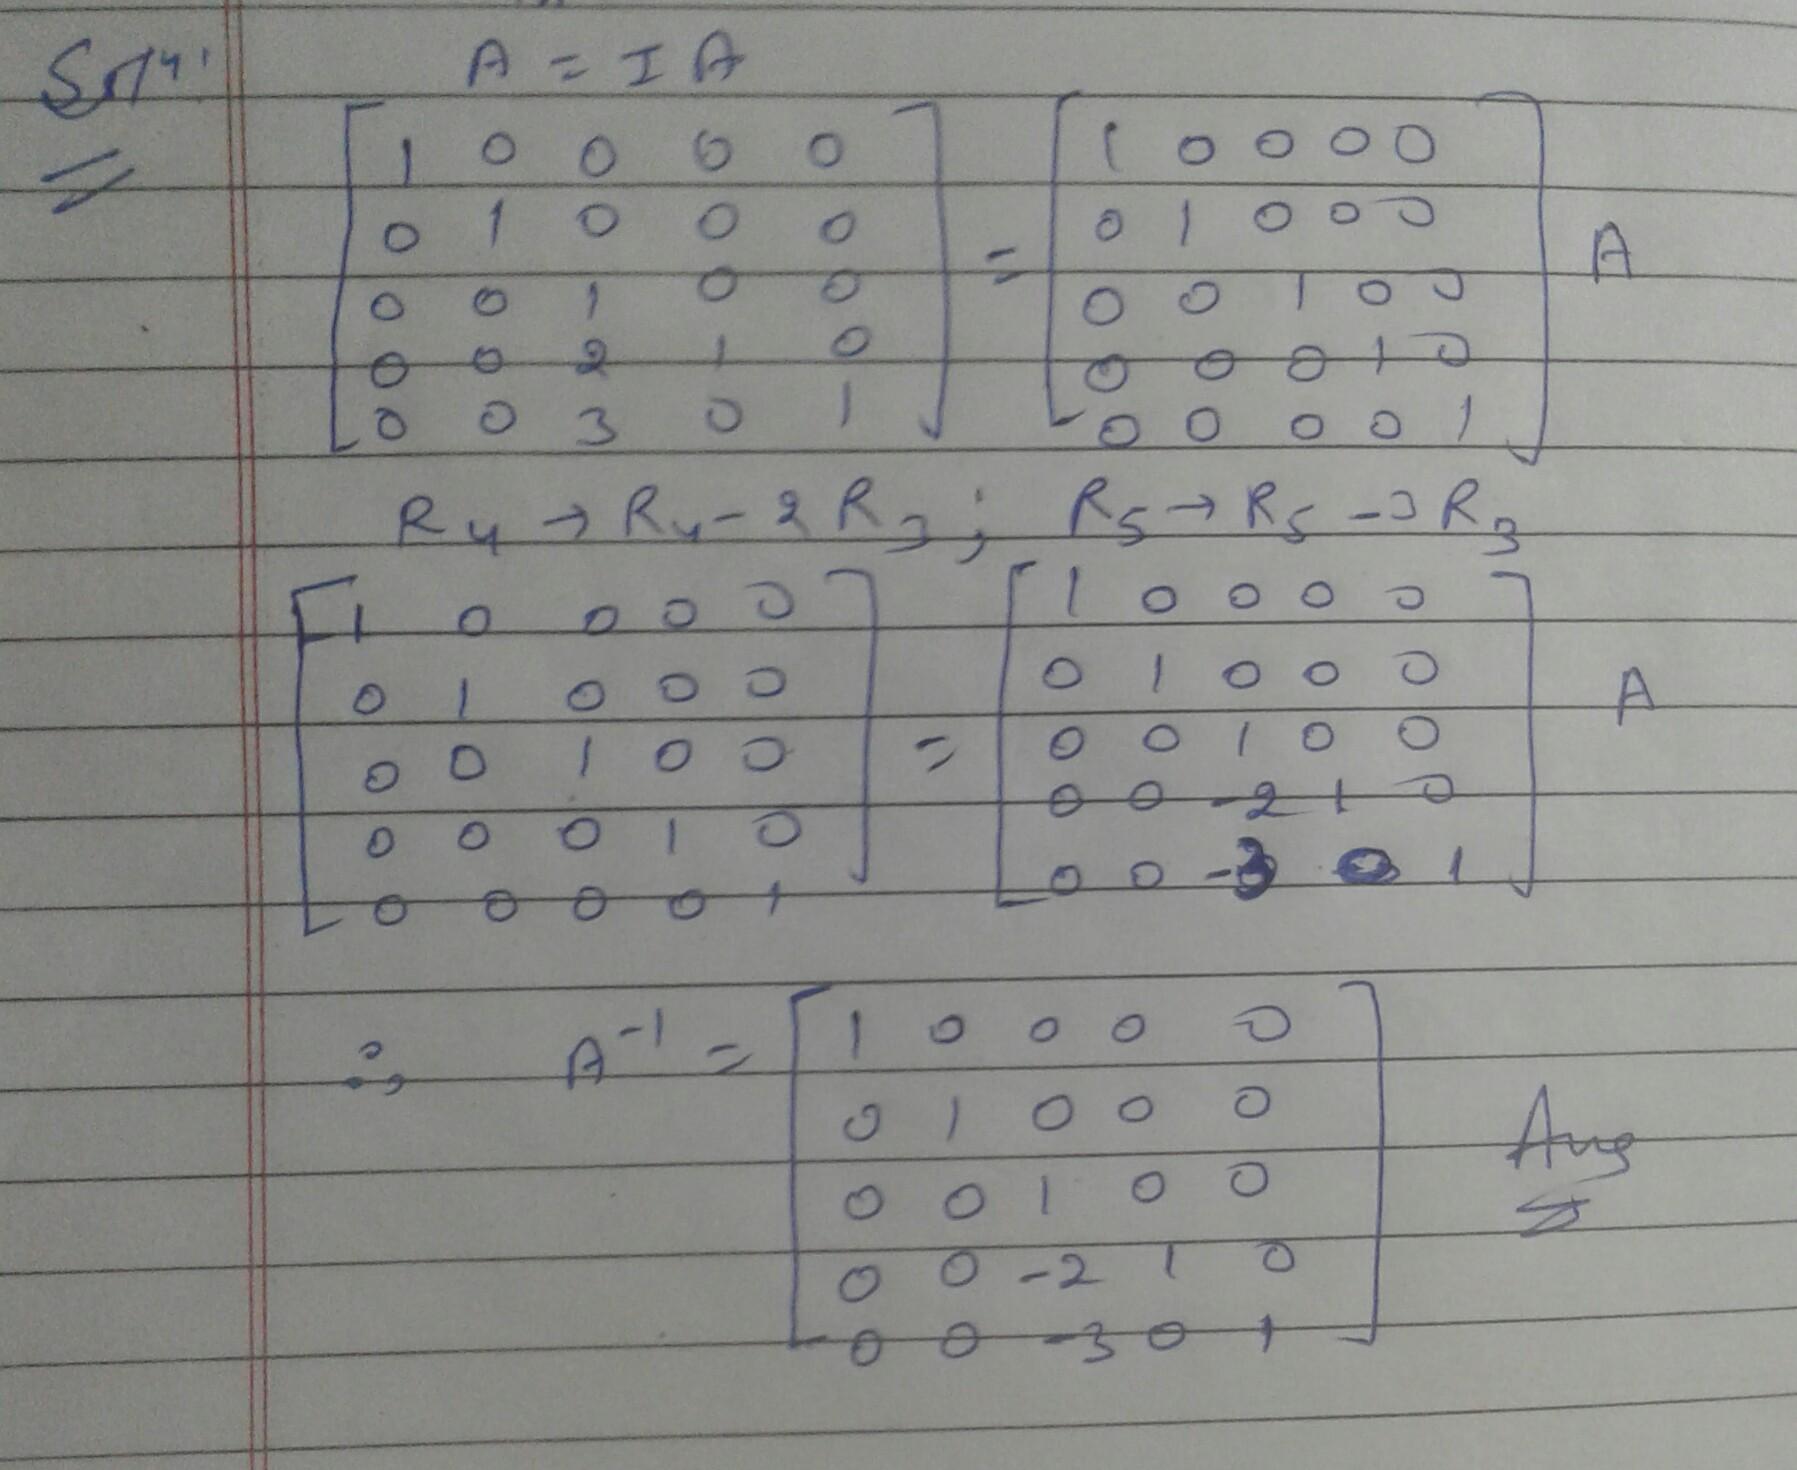 Soln.
A = I A
[ 1 0 0 0 0 ] = [ 1 0 0 0 0 ]
[ 0 1 0 0 0 ] [ 0 1 0 0 0 ] A
[ 0 0 1 0 0 ] [ 0 0 1 0 0 ]
[ 0 0 2 1 0 ] [ 0 0 0 1 0 ]
[ 0 0 3 0 1 ] [ 0 0 0 0 1 ]
R₄ → R₄ - 2 R₃ ; R₅ → R₅ - 3 R₃
[ 1 0 0 0 0 ] = [ 1 0 0 0 0 ]
[ 0 1 0 0 0 ] [ 0 1 0 0 0 ] A
[ 0 0 1 0 0 ] [ 0 0 1 0 0 ]
[ 0 0 0 1 0 ] [ 0 0 -2 1 0 ]
[ 0 0 0 0 1 ] [ 0 0 -3 0 1 ]
∴, A⁻¹ = [ 1 0 0 0 0 ]
[ 0 1 0 0 0 ] Ans
[ 0 0 1 0 0 ]
[ 0 0 -2 1 0 ]
[ 0 0 -3 0 1 ]